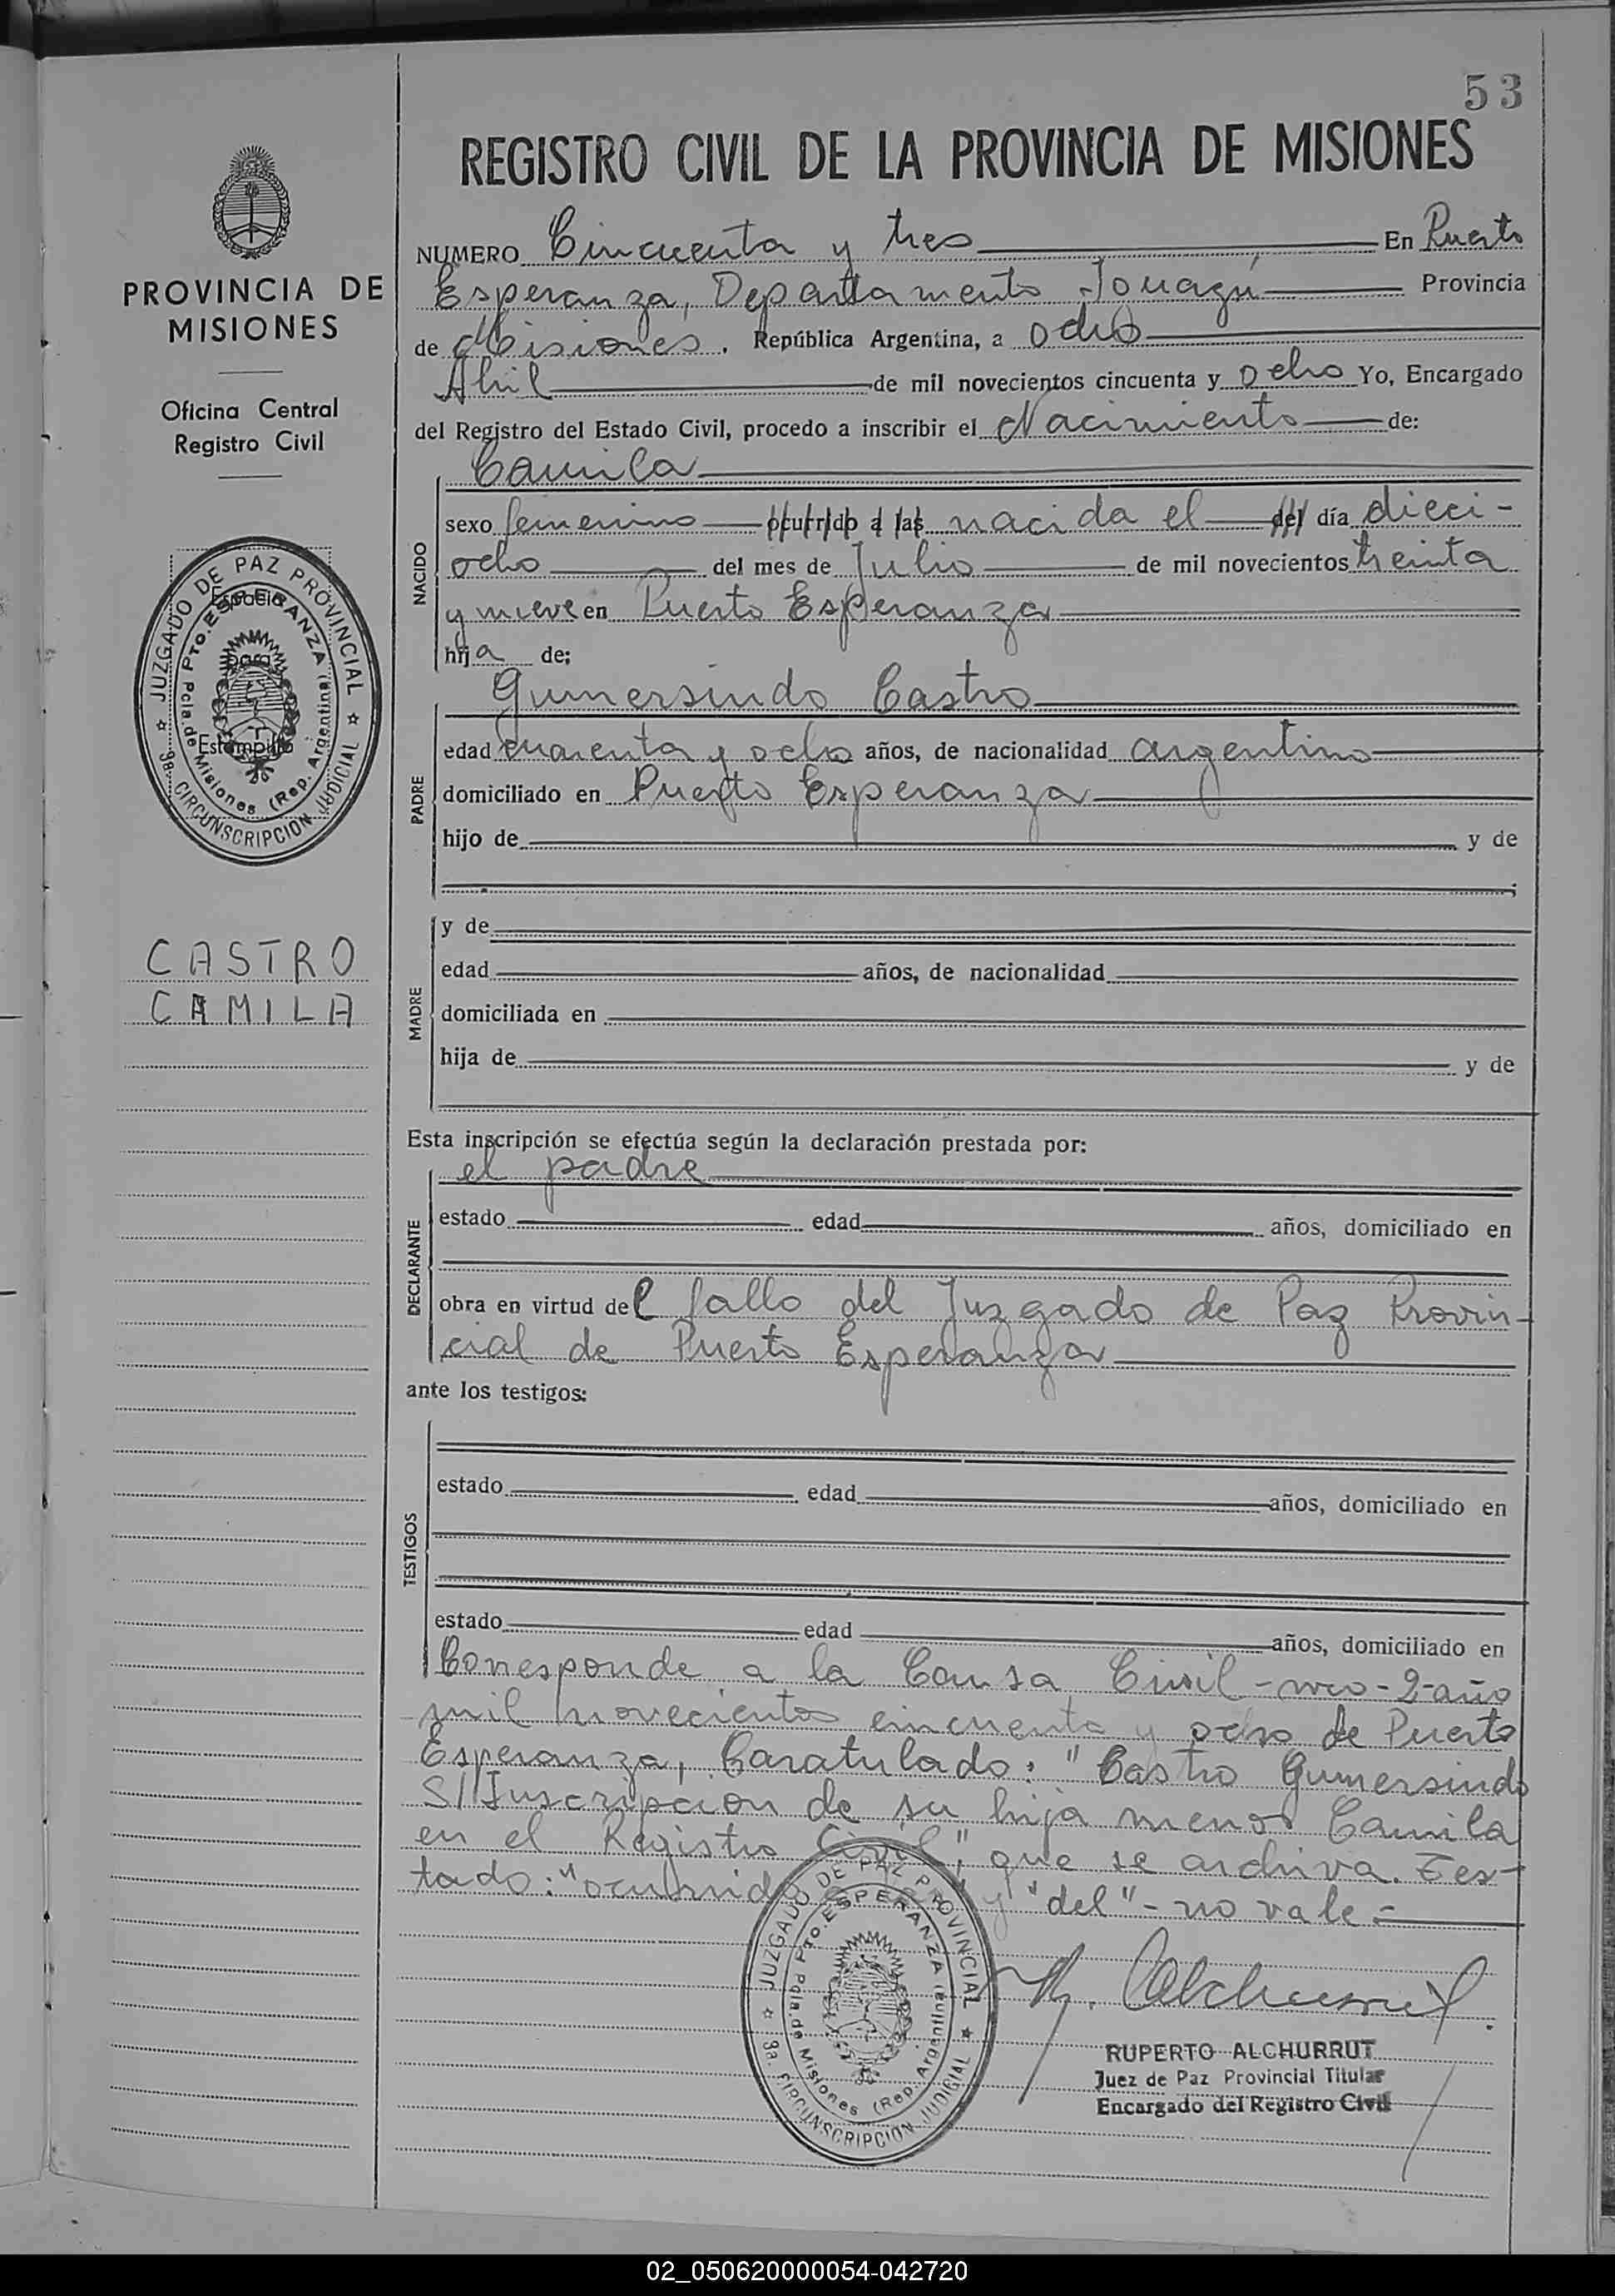 53
REGISTRO CIVIL DE LA PROVINCIA DE MISIONES
NUMERO Cincuenta y tres En Puerto
Esperanza, Departamento Iguazú Provincia
de Misiones. República Argentina, a ocho
Abril de mil novecientos cincuenta y ocho Yo, Encargado
del Registro del Estado Civil, procedo a inscribir el Nacimiento de:
NACIDO
Camila
sexo femenino ocurrido a las nacida el del día dieci-
ocho del mes de Julio de mil novecientos treinta
y nueve en Puerto Esperanza
hija de;
PADRE
Gumersindo Castro
edad cuarenta y ocho años, de nacionalidad argentino
domiciliado en Puerto Esperanza
hijo de y de
;
MADRE
y de
edad años, de nacionalidad
domiciliada en
hija de y de
Esta inscripción se efectúa según la declaración prestada por:
DECLARANTE
el padre
estado edad años, domiciliado en
obra en virtud del fallo del Juzgado de Paz Provin-
cial de Puerto Esperanza
ante los testigos:
TESTIGOS
estado edad años, domiciliado en
estado edad años, domiciliado en
Corresponde a la Causa Civil - nro - 2 - año
mil novecientos cincuenta y ocho de Puerto
Esperanza, Caratulado: "Castro Gumersindo
S/Inscripcion de su hija menor Camila
en el Registro Civil", que se archiva. Tes-
tado: "ocurrido y "del" - no vale =
R. Alchurrut
RUPERTO ALCHURRUT
Juez de Paz Provincial Titular
Encargado del Registro Civil
JUZGADO DE PAZ PROVINCIAL
Pto. ESPERANZA
Pcia. de Misiones (Rep. Argentina)
3a. CIRCUNSCRIPCION JUDICIAL
PROVINCIA DE
MISIONES
Oficina Central
Registro Civil
JUZGADO DE PAZ PROVINCIAL
Pto. ESPERANZA
Pcia. de Misiones (Rep. Argentina)
3a. CIRCUNSCRIPCION JUDICIAL
Espacio
para
Estampilla
CASTRO
CAMILA
02_050620000054-042720